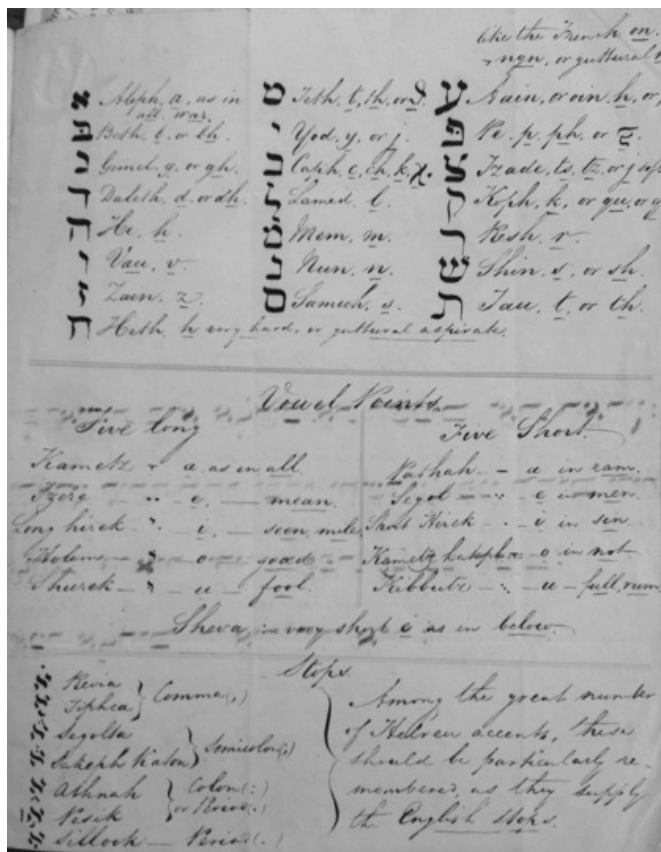 like the French on.
ngn, or guttural
א Aleph, a, as in
all, war.
Beth, b. or bh.
Gimel, g. or gh.
Daleth, d. or dh.
He, h.
Vau, v.
Zain, z.
ח Heth, h very hard, or guttural aspirate.
ט Teth, t, th, or
Yod, y, or j.
Caph, c, ch, k, χ.
Lamed, l.
Mem, m.
Nun, n.
ס Samech, s.
ע Aain, or oin h, or
Pe. p, ph, or
Tzade, ts, tz, or j sof
Koph, k, or qu, or q
Resh, r.
ש Shin, s, or sh.
ת Tau, t, or th
Vowel Points
Five long
Kametz a. as in all.
Tzere e. mean.
Long hirek i, seen, mile,
Holem o
Shurek u fool.
Five Short.
Pathah a in ram.
Segol e in men.
Short Hirek i in sin.
Kametz hateph o in not
Kibbutz u full, rum
Sheva very short e as in below.
Stops.
Revia
Tiphca } Comma (,)
Segolta
Sakeph Katon } Semicolon (;)
Athnah } Colon (:)
Pesik or Period (.)
Sillook Period (.)
Among the great number
of Hebrew accents, these
should be particularly re-
membered, as they supply
the English stops.